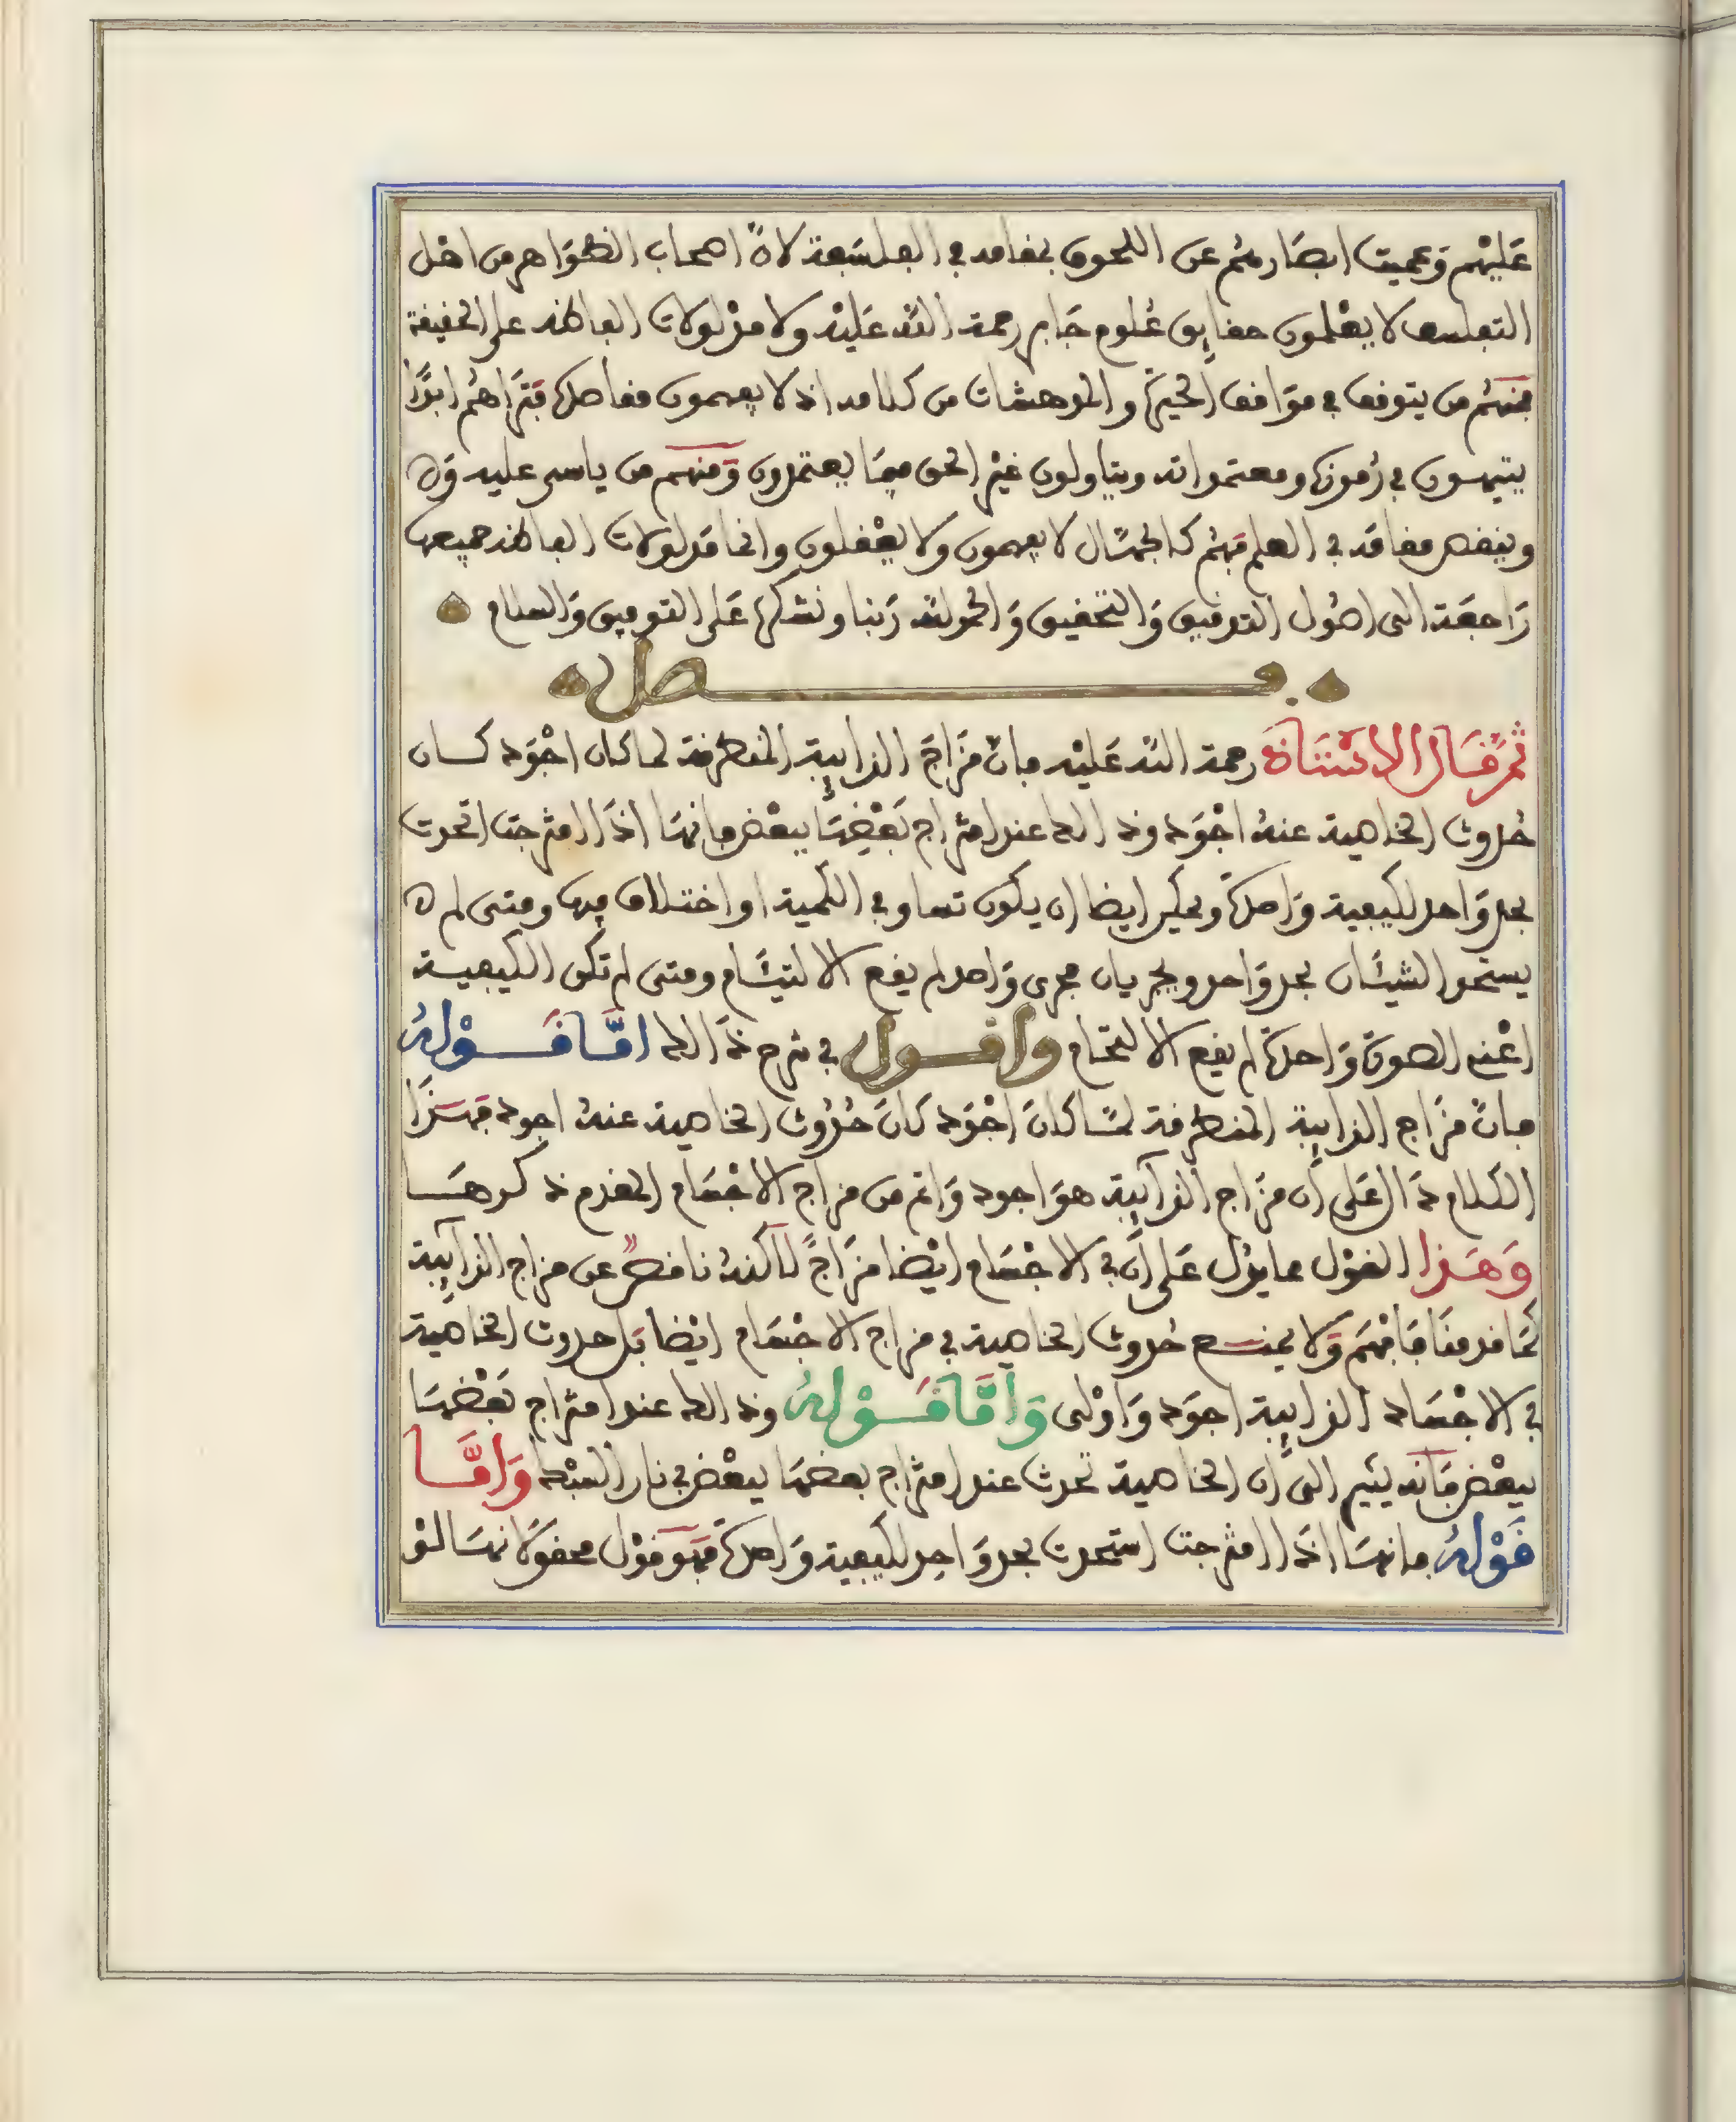 عَليْهم وَعميت ابصَارهُم عن اللحوق بمقامه في الفلسَفة لانّ اصحاب الظوَاهر من اهْل
التفلسف لا يعْلمون حقايق عُلوم جَابر رحمة الله عَليْه ولا مدْلولات الفاظه على الحقيقة
فمنهُم من يتوقف في موَاقف الحيرَة والمدهشات من كلامه اذ لا يفهمون مقاصده فترَاهُم ابدًا
يتيهون في رُموزه ومعتمداته ويتاولون غيْر الحق فيمَا يعتمدون وَمنهم من ياسى عليه وَ
وينقص مقامَه في العلم فهُم كالجهّال لا يفهمون وَلا يعْقلون وانما مَدلولات الفاظه جميعها
رَاجعَة الى اصُول التوفيق وَالتحقيق وَالحمد لله رَبنا ونشكره عَلى التوفيق وَالسلام
فصل
ثمّ قَال الاسْتَاذ رحمة الله عَليْه فانّ مزَاجَ الذايبة المنطرقة لما كان اجْوَد كان
حُدوث الخاصية عندهُ اجْوَد وذلك عند امتزاج بَعْضهَا ببعْض فانهَا اذَا امتزجت اتحدت
بحد وَاحد لكيفية وَاحدة ويمكن ايضا ان يكون تساو في الكمية او اختلاف فيها ومتى لم
يستحد الشيئَان بحد وَاحد ويجريان مجرى وَاحد لم يقع الالتيَام ومتى لم تكن الكيفية
اعْني الصورَة وَاحدة لم يقع الالتحَام وَاقول في شرح ذَلك امَّا قَوْلهُ
فانّ مزَاج الذايبة المنطرقة لمّا كانَ اجْوَد كانَ حُدُوث الخاصية عندهُ اجود فهَذَا
الكَلام دَال عَلى أن مزَاج الذآيبة هوَ اجود وَاتم من مزاج الاجْسَام المقدم ذكرهَا
وَهَذا القوْل مما يدُل عَلى أنّ في الاجْسَام ايْضا مزَاجًا لاكنهُ ناقصٌ عن مزاج الذآيبة
كمَا قدمنَا فافهَم وَلا يمنع حُدوث الخاصية في مزاج الاجْسَام ايْضا بَل حدوث الخاصية
في الاجْسَاد الذايبة اجوَد وَاوْلى وَأمَّا قَوْلهُ وذلك عند امتزاج بَعْضهَا
ببعْض فَانه يشير الىَ ان الخاصية تحدث عند امتزاج بعضهَا ببعْض في نار السبْك وَامَّا
قَوْلهُ فانهَا اذَا امتزجت استحدت بحد وَاحد لكيفية وَاحدة فهوَ قوْل محقق لانهَا لوْ